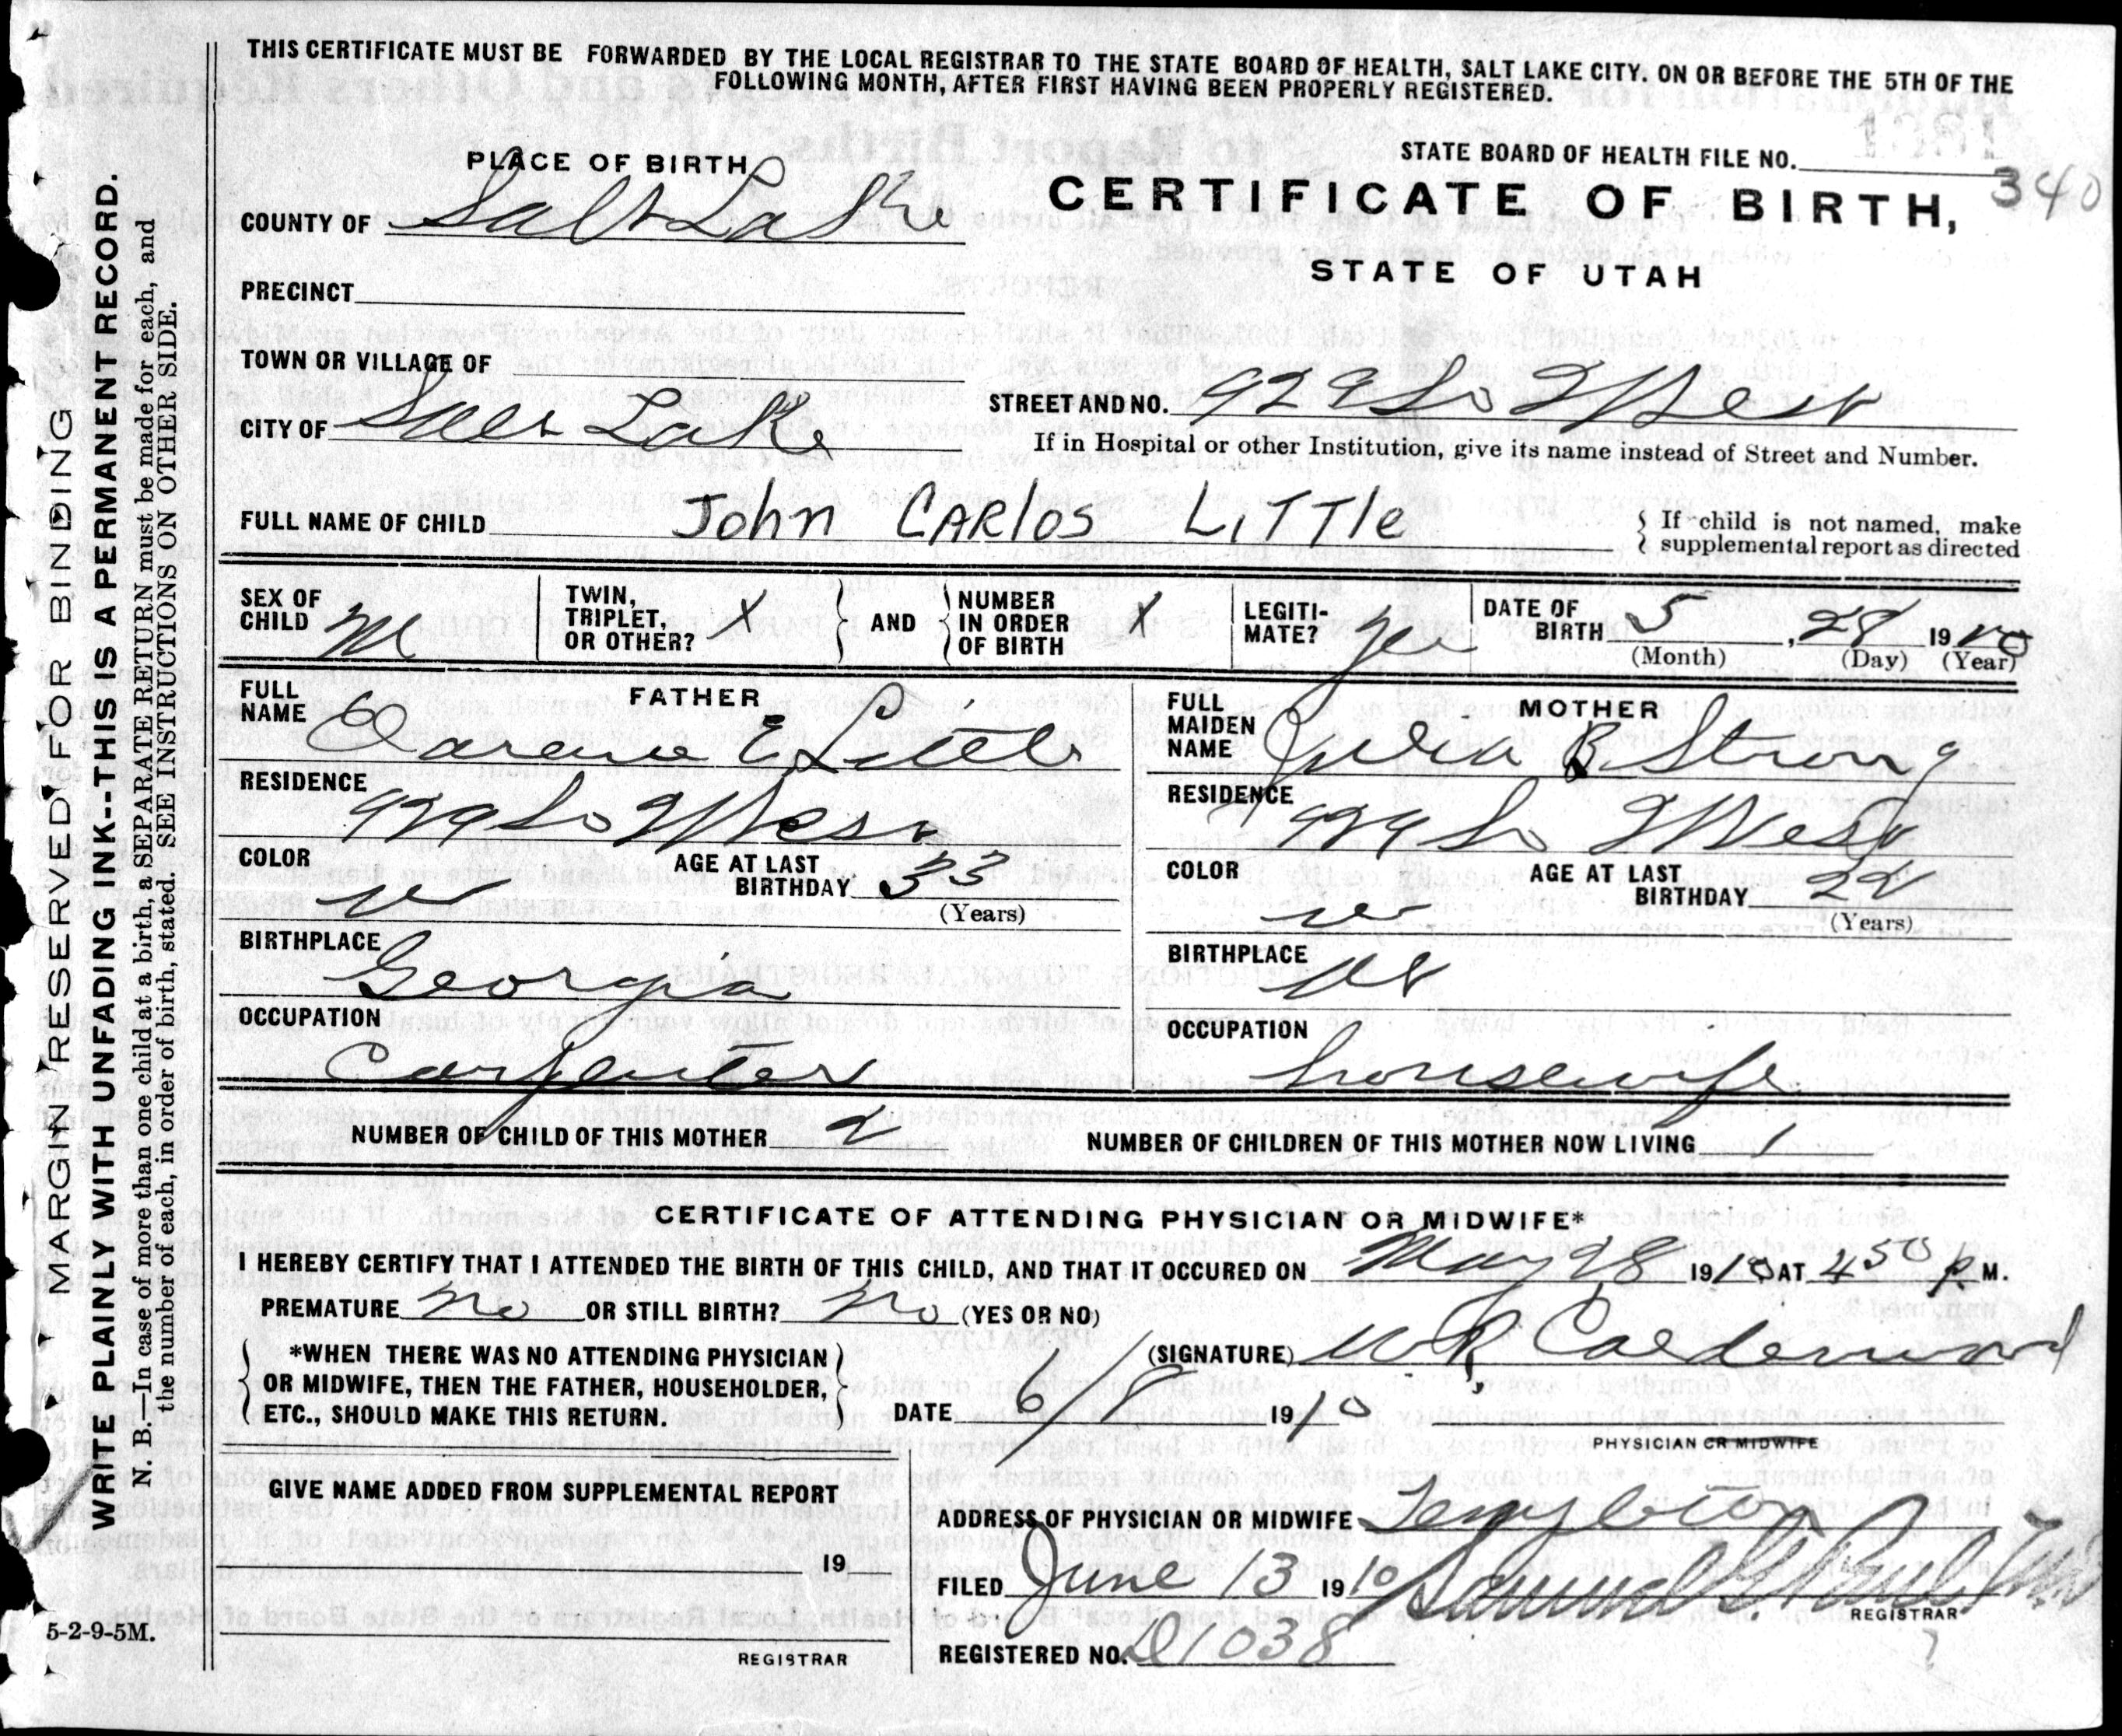 THIS CERTIFICATE MUST BE FORWARDED BY THE LOCAL REGISTRAR TO THE STATE BOARD OF HEALTH, SALT LAKE CITY. ON OR BEFORE THE 5TH OF THE
FOLLOWING MONTH, AFTER FIRST HAVING BEEN PROPERLY REGISTERED.
MARGIN RESERVED FOR BINDING
WRITE PLAINLY WITH UNFADING INK--THIS IS A PERMANENT RECORD.
N. B.—In case of more than one child at a birth, a SEPARATE RETURN must be made for each, and
the number of each, in order of birth, stated. SEE INSTRUCTIONS ON OTHER SIDE.
5-2-9-5M.
PLACE OF BIRTH
STATE BOARD OF HEALTH FILE NO.
340
CERTIFICATE OF BIRTH,
STATE OF UTAH
COUNTY OF Salt Lake
PRECINCT
TOWN OR VILLAGE OF
CITY OF Salt Lake
STREET AND NO. 929 So 2 West
If in Hospital or other Institution, give its name instead of Street and Number.
FULL NAME OF CHILD John CARlos LiTTle
If child is not named, make
supplemental report as directed
SEX OF CHILD M
TWIN, TRIPLET, OR OTHER? X
AND
NUMBER IN ORDER OF BIRTH X
LEGITI-MATE? yes
DATE OF BIRTH 5, 28 1910
(Month) (Day) (Year)
FATHER
FULL NAME Clarence C Little
RESIDENCE 929 So 2 West
COLOR w
AGE AT LAST BIRTHDAY 33
(Years)
BIRTHPLACE
Georgia
OCCUPATION
Carpenter
MOTHER
FULL MAIDEN NAME Julia B. Strong
RESIDENCE 929 So 2 West
COLOR w
AGE AT LAST BIRTHDAY 22
(Years)
BIRTHPLACE
Ut
OCCUPATION
housewife
NUMBER OF CHILD OF THIS MOTHER 2
NUMBER OF CHILDREN OF THIS MOTHER NOW LIVING 1
CERTIFICATE OF ATTENDING PHYSICIAN OR MIDWIFE*
I HEREBY CERTIFY THAT I ATTENDED THE BIRTH OF THIS CHILD, AND THAT IT OCCURED ON May 28 1910 AT 4 50 P M.
PREMATURE no OR STILL BIRTH? no (YES OR NO)
*WHEN THERE WAS NO ATTENDING PHYSICIAN
OR MIDWIFE, THEN THE FATHER, HOUSEHOLDER,
ETC., SHOULD MAKE THIS RETURN.
(SIGNATURE) W R Calderwood
DATE 6/ 1910
PHYSICIAN OR MIDWIFE
GIVE NAME ADDED FROM SUPPLEMENTAL REPORT
19
REGISTRAR
ADDRESS OF PHYSICIAN OR MIDWIFE Templeton
FILED June 13 1910 Samuel G. Paul
REGISTRAR
REGISTERED NO. D1038